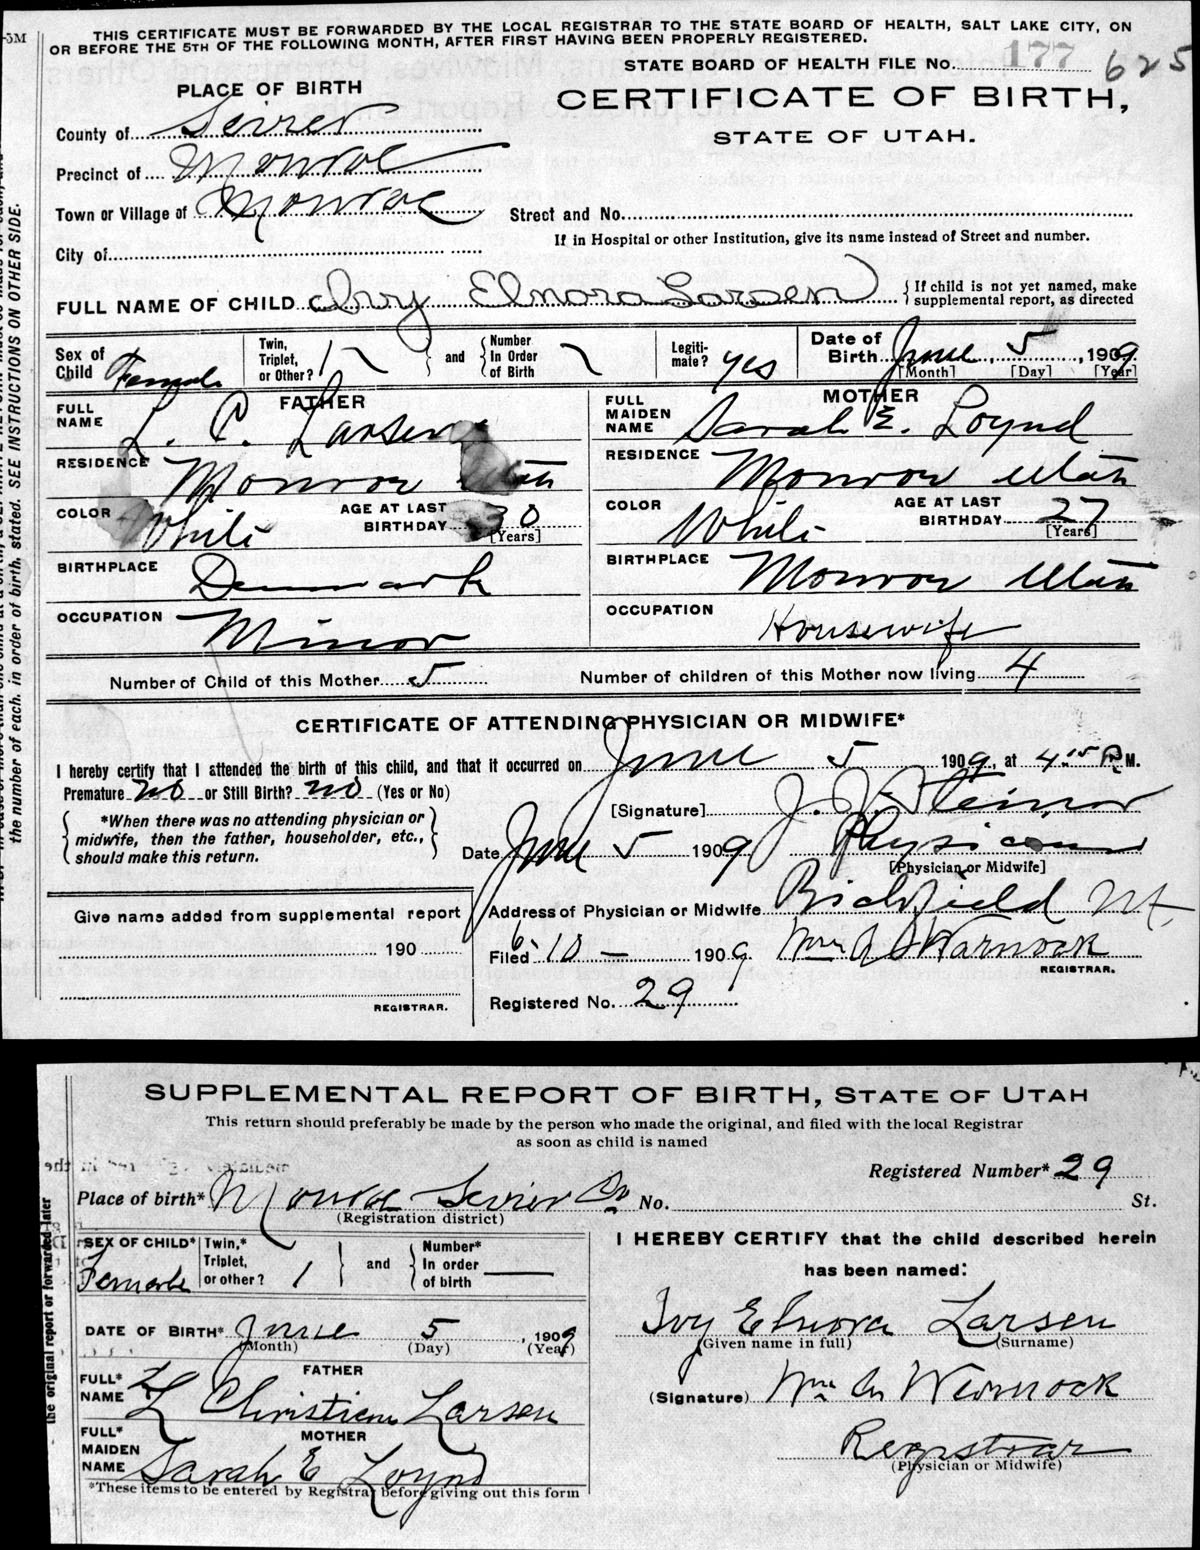 THIS CERTIFICATE MUST BE FORWARDED BY THE LOCAL REGISTRAR TO THE STATE BOARD OF HEALTH, SALT LAKE CITY, ON
OR BEFORE THE 5TH OF THE FOLLOWING MONTH, AFTER FIRST HAVING BEEN PROPERLY REGISTERED.
STATE BOARD OF HEALTH FILE No. 177 625
PLACE OF BIRTH
CERTIFICATE OF BIRTH,
STATE OF UTAH.
County of Sevier
Precinct of Monroe
Town or Village of Monroe
Street and No.
If in Hospital or other Institution, give its name instead of Street and number.
City of
FULL NAME OF CHILD Ivy Elnora Larsen
If child is not yet named, make supplemental report, as directed
Sex of Child Female
Twin, Triplet, or Other? 1
and
Number In Order of Birth
Legitimate? yes
Date of Birth June 5, 1909
[Month] [Day] [Year]
FATHER
FULL NAME L. C. Larsen
RESIDENCE Monroe Utah
COLOR White
AGE AT LAST BIRTHDAY 30 [Years]
BIRTHPLACE Denmark
OCCUPATION Minor
MOTHER
FULL MAIDEN NAME Sarah E. Loynd
RESIDENCE Monroe Utah
COLOR White
AGE AT LAST BIRTHDAY 27 [Years]
BIRTHPLACE Monroe Utah
OCCUPATION Housewife
Number of Child of this Mother 5
Number of children of this Mother now living 4
CERTIFICATE OF ATTENDING PHYSICIAN OR MIDWIFE*
I hereby certify that I attended the birth of this child, and that it occurred on June 5 1909, at 4 15 P.M.
Premature no or Still Birth? no (Yes or No)
*When there was no attending physician or
midwife, then the father, householder, etc.,
should make this return.
[Signature] J. J. Steiner
Date June 5 1909 Physician
[Physician or Midwife]
Address of Physician or Midwife Richfield Ut.
Give name added from supplemental report
190
REGISTRAR.
Filed 6-10- 1909. Wm A Warnock
REGISTRAR.
Registered No. 29
the number of each, in order of birth, stated. SEE INSTRUCTIONS ON OTHER SIDE.
SUPPLEMENTAL REPORT OF BIRTH, STATE OF UTAH
This return should preferably be made by the person who made the original, and filed with the local Registrar
as soon as child is named
Registered Number* 29
Place of birth* Monroe Sevier Co No. St.
(Registration district)
SEX OF CHILD* Female
Twin,* Triplet, or other? 1
and
Number* In order of birth
DATE OF BIRTH* June 5, 1909
(Month) (Day) (Year)
FATHER
FULL* NAME L Christian Larsen
MOTHER
FULL* MAIDEN NAME Sarah E Loynd
*These items to be entered by Registrar before giving out this form
I HEREBY CERTIFY that the child described herein
has been named:
Ivy Elnora Larsen
(Given name in full) (Surname)
(Signature) Wm A Warnock
Registrar
(Physician or Midwife)
the original report or forwarded later